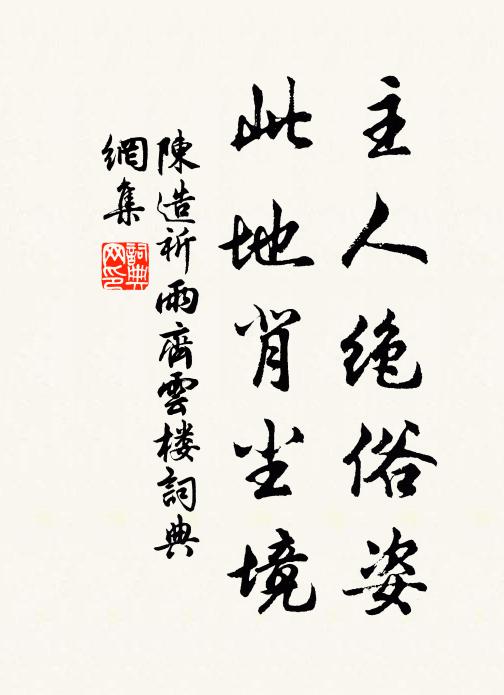 主人绝俗姿
此地肖尘境
陳造祈雨齊雲楼詞典
網集
詞典
网印